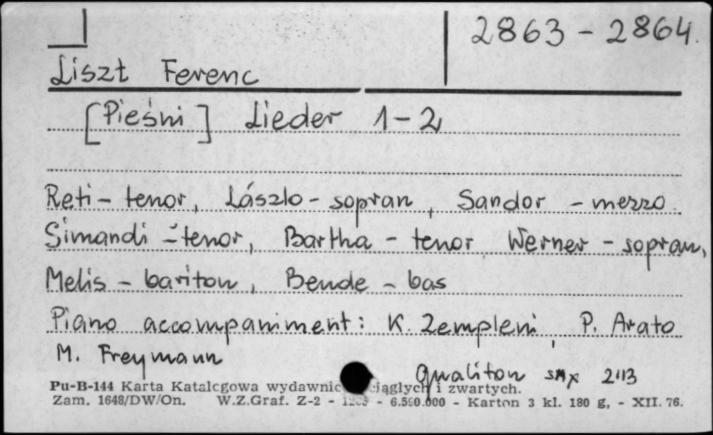 2863 - 2864.
Liszt Ferenc
[Pieśni] Lieder 1-2
Reti - tenor, László - sopran, Sandor - mezzo.
Simandi - tenor, Bartha - tenor, Werner - sopran,
Melis - bariton, Bende - bas
Piano accompaniment: K. Zempleni, P. Arato
M. Freymann
Qualiton 2113
Pu-B-144 Karta Katalogowa wydawnic ciągłych i zwartych.
Zam. 1648/DW/On. W.Z.Graf. Z-2 - - 6.590.000 - Karton 3 kl. 180 g, - XII. 76.